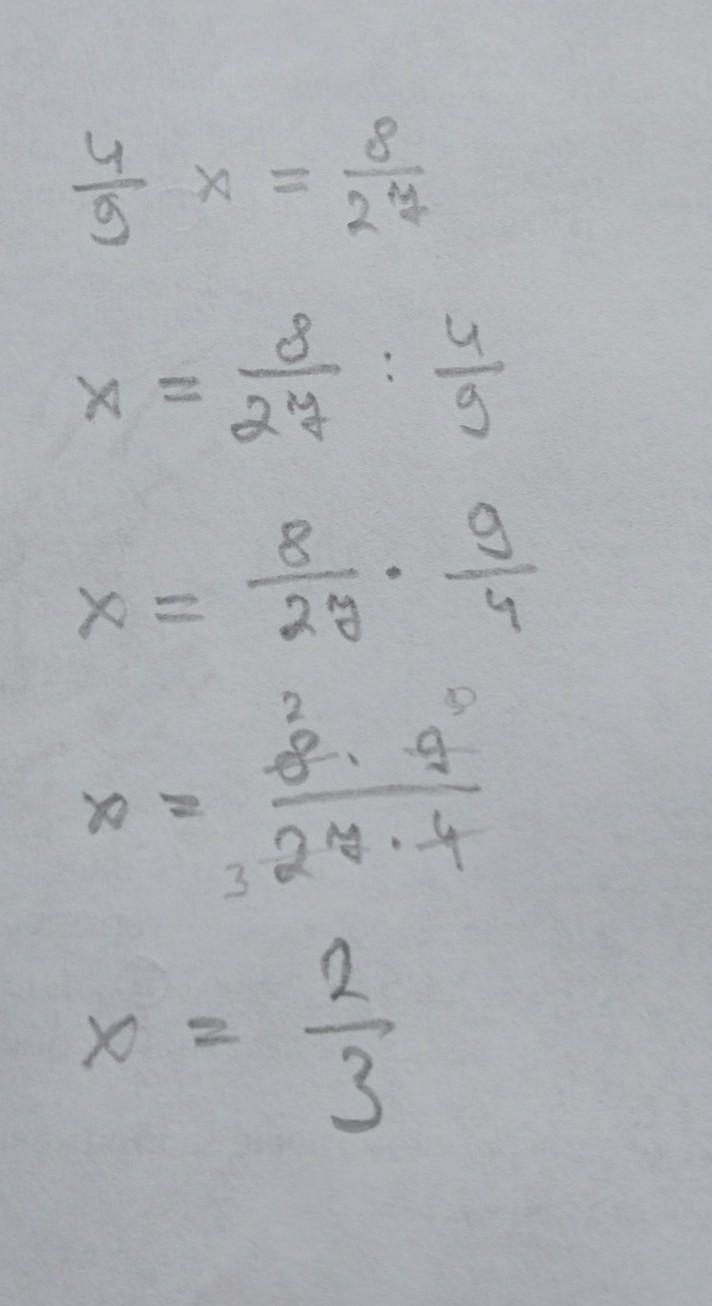 4/9 x = 8/27
x = 8/27 : 4/9
x = 8/27 · 9/4
x = 8 · 9 / 27 · 4
2
3
x = 2/3